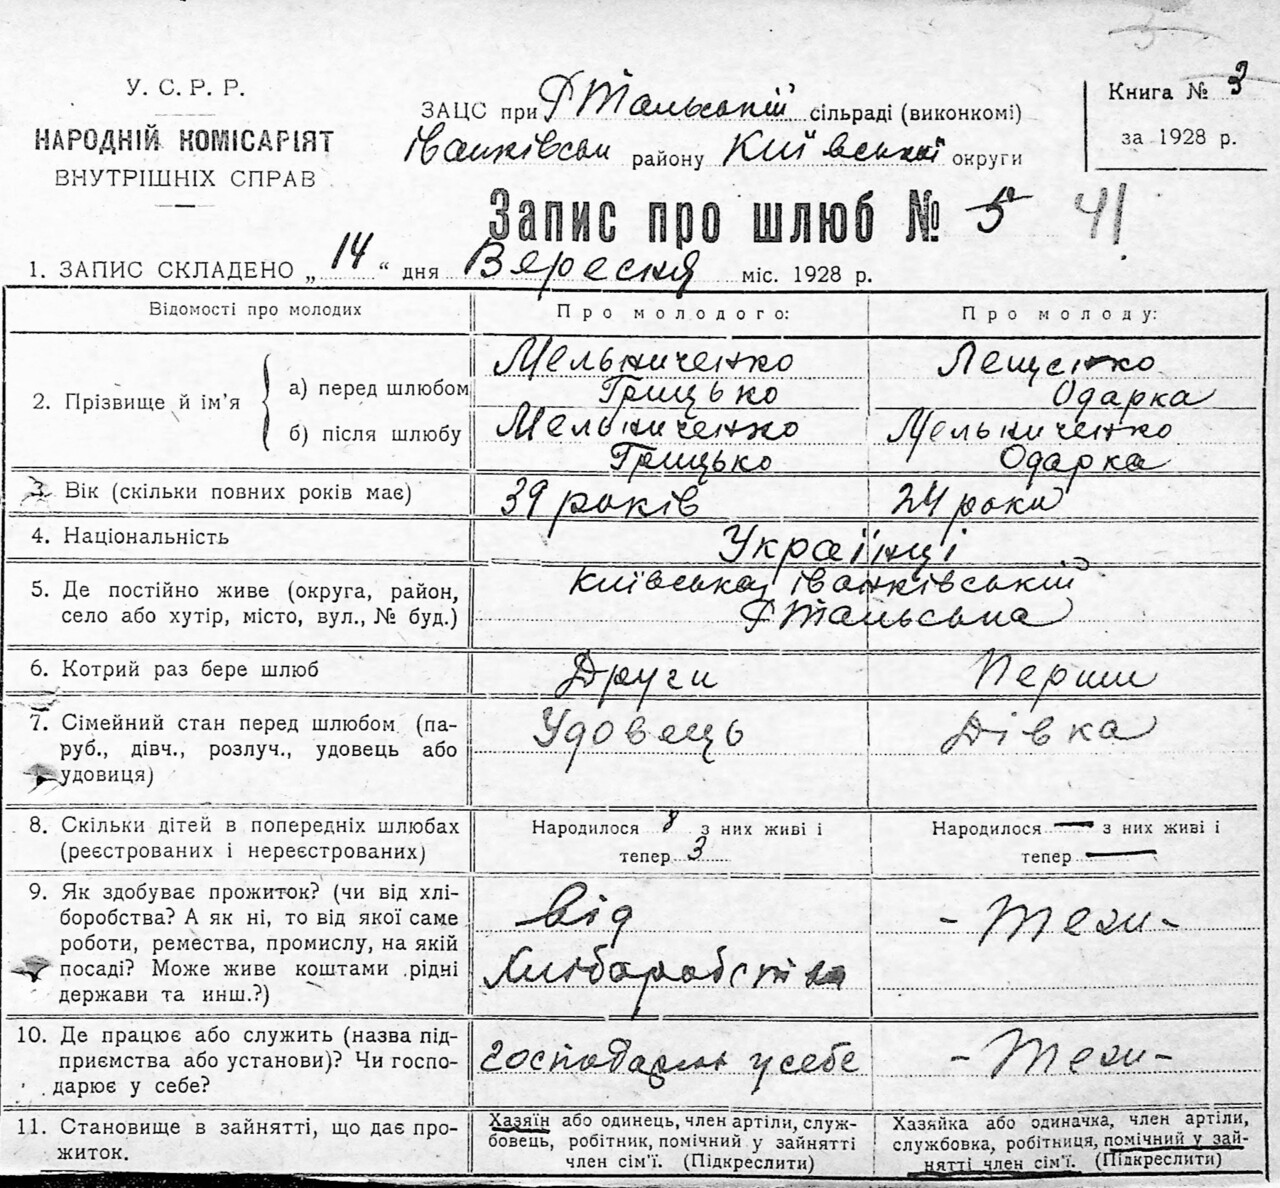 У. С. Р. Р.
НАРОДНІЙ КОМІСАРІЯТ
ВНУТРІШНІХ СПРАВ
ЗАЦС при Ф Тальській сільраді (виконкомі)
Іванківськ району Київської округи
Книга № 3
за 1928 р.
Запис про шлюб № 5 41
1. ЗАПИС СКЛАДЕНО „ 14 “ дня Вересня міс. 1928 р.
Відомості про молодих
Про молодого:
Про молоду:
2. Прізвище й ім’я
а) перед шлюбом
Мельниченко
Грицько
Лещенко
Одарка
б) після шлюбу
Мельниченко
Грицько
Мельниченко
Одарка
3. Вік (скільки повних років має)
39 років
24 роки
4. Національність
Українці
5. Де постійно живе (округа, район,
село або хутір, місто, вул., № буд.)
Київська, Іванківській
Ф Тальська
6. Котрий раз бере шлюб
Други
Перши
7. Сімейний стан перед шлюбом (па-
руб., дівч., розлуч., удовець або
удовиця)
Удовець
Дівка
8. Скільки дітей в попередніх шлюбах
(реєстрованих і нереєстрованих)
Народилося 8 з них живі і
тепер 3
Народилося — з них живі і
тепер —
9. Як здобуває прожиток? (чи від хлі-
боробства? А як ні, то від якої саме
роботи, ремества, промислу, на якій
посаді? Може живе коштами рідні
держави та инш.?)
від
Хліборобства
- Тежи -
10. Де працює або служить (назва під-
приємства або установи)? Чи госпо-
дарює у себе?
господарює у себе
- Тежи -
11. Становище в зайнятті, що дає про-
житок.
Хазяїн або одинець, член артіли, служ-
бовець, робітник, помічний у зайнятті
член сім’ї. (Підкреслити)
Хазяйка або одиначка, член артіли,
службовка, робітниця, помічний у зай-
нятті член сім’ї. (Підкреслити)